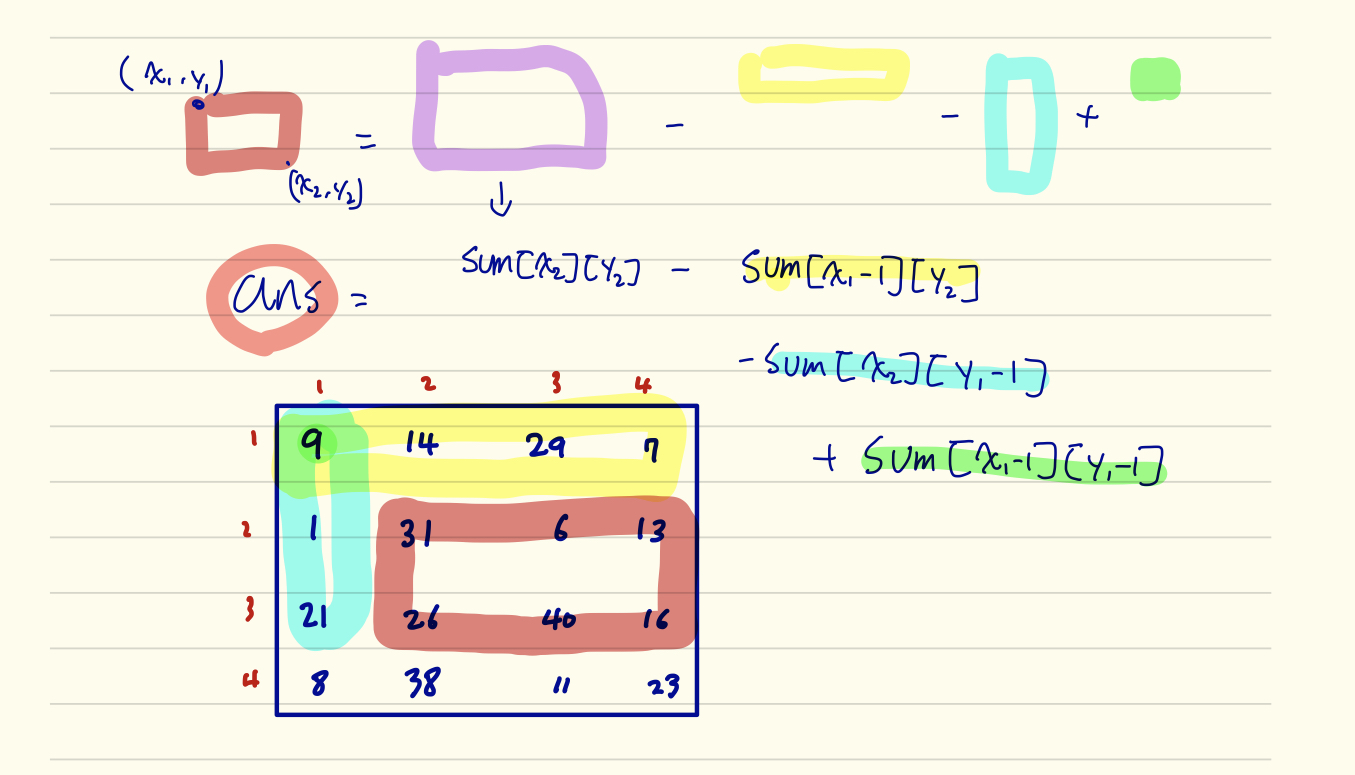 (x₁,y₁)
= - - +
(x₂,y₂)
↓
ans = sum[x₂][y₂] - sum[x₁-1][y₂]
-sum[x₂][y₁-1]
+ sum[x₁-1][y₁-1]
1 2 3 4
1 9 14 29 7
2 1 31 6 13
3 21 26 40 16
4 8 38 11 23